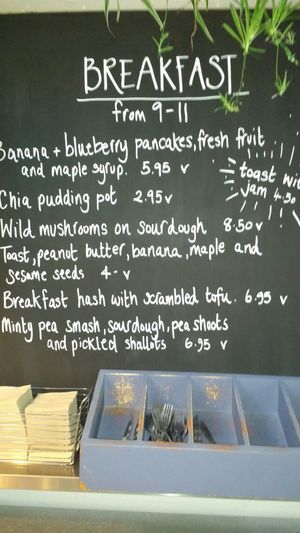 BREAKFAST
from 9-11
Banana + blueberry pancakes, fresh fruit
and maple syrup. 5.95 v
toast wi
jam 4.50
Chia pudding pot 2.95 v
Wild mushrooms on sourdough 8.50 v
Toast, peanut butter, banana, maple and
sesame seeds 4- v
Breakfast hash with scrambled tofu. 6.95 v
Minty pea smash, sourdough, pea shoots
and pickled shallots 6.95 v